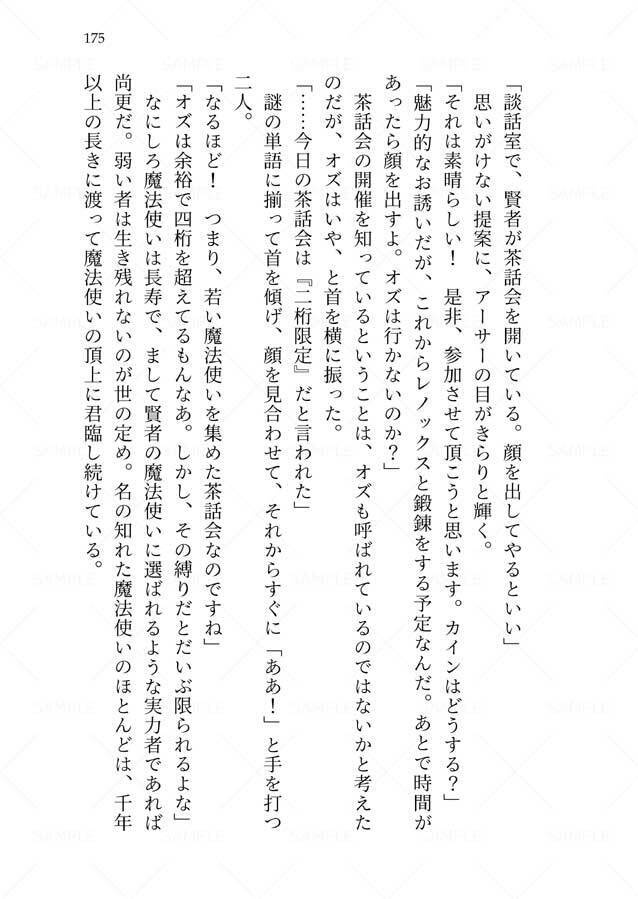 175
「談話室で、賢者が茶話会を開いている。顔を出してやるといい」
思いがけない提案に、アーサーの目がきらりと輝く。
「それは素晴らしい！　是非、参加させて頂こうと思います。カインはどうする？」
「魅力的なお誘いだが、これからレノックスと鍛錬をする予定なんだ。あとで時間が
あったら顔を出すよ。オズは行かないのか？」
茶話会の開催を知っているということは、オズも呼ばれているのではないかと考えた
のだが、オズはいや、と首を横に振った。
「……今日の茶話会は『二桁限定』だと言われた」
謎の単語に揃って首を傾げ、顔を見合わせて、それからすぐに「ああ！」と手を打つ
二人。
「なるほど！　つまり、若い魔法使いを集めた茶話会なのですね」
「オズは余裕で四桁を超えてるもんなあ。しかし、その縛りだとだいぶ限られるよな」
なにしろ魔法使いは長寿で、まして賢者の魔法使いに選ばれるような実力者であれば
尚更だ。弱い者は生き残れないのが世の定め。名の知れた魔法使いのほとんどは、千年
以上の長きに渡って魔法使いの頂上に君臨し続けている。